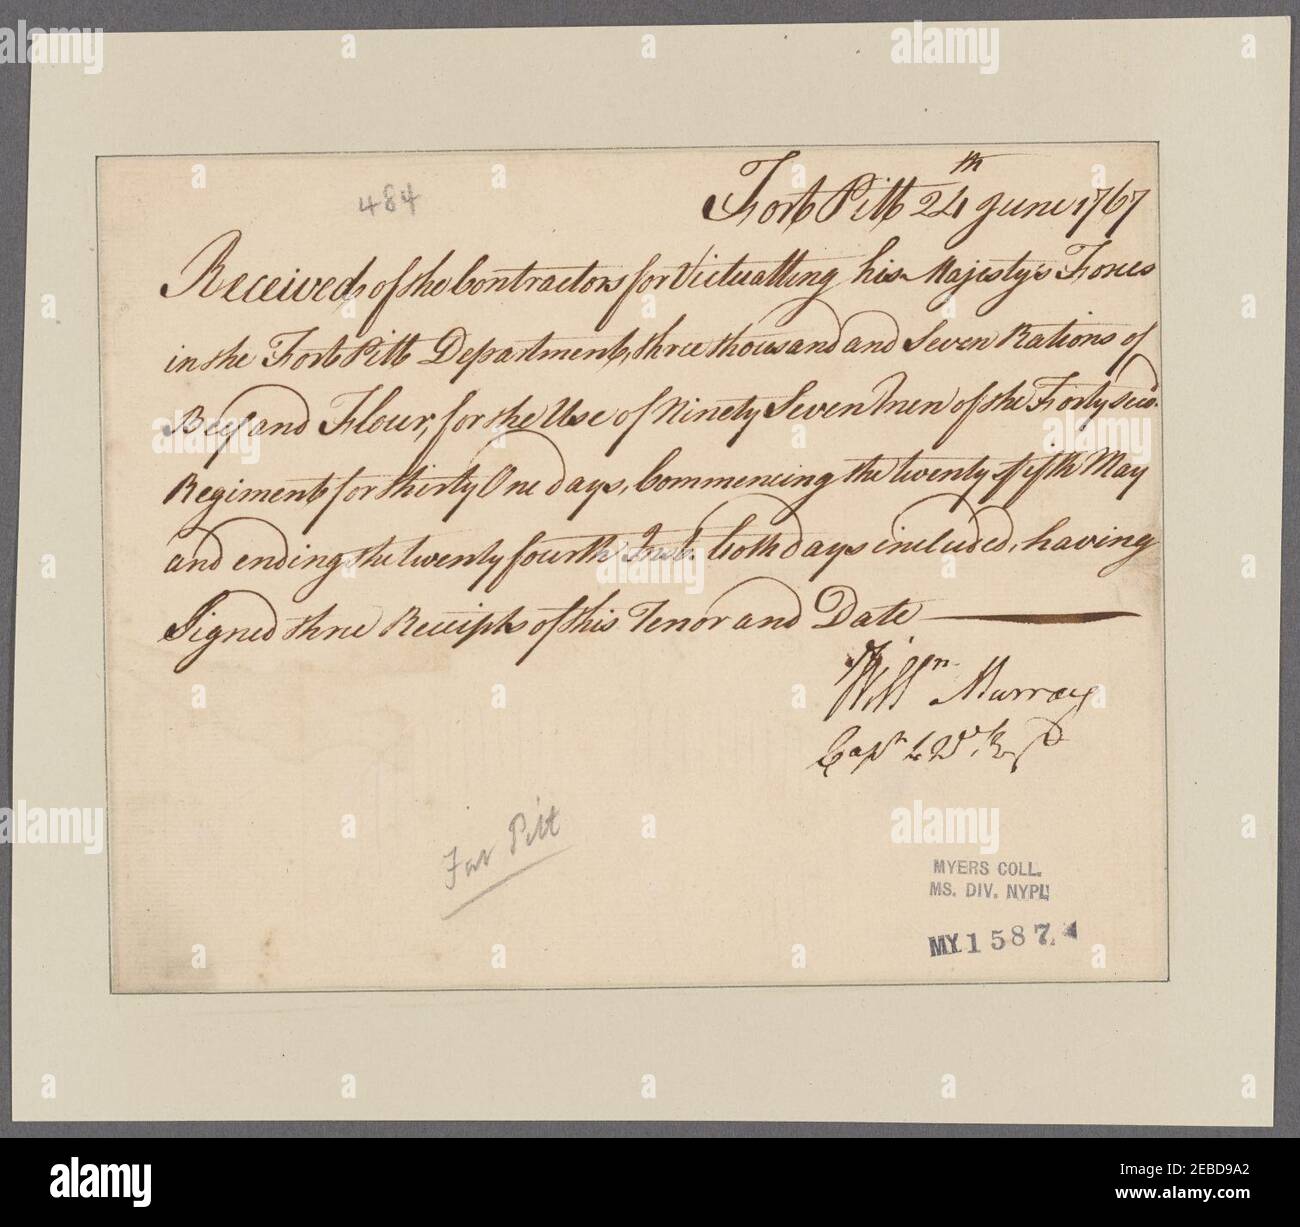 484
Fort Pitt 24th June 1767
Received of the Contractors for Victualling his Majesty's Forces
in the Fort Pitt Department, three thousand and Seven Rations of
Beef and Flour, for the Use of Ninety Seven Men of the Forty Seco.
Regiment for thirty One days, Commencing the twenty fifth May
and ending the twenty fourth Inst. both days included, having
Signed three Receipts of this Tenor and Date
Willm Murray
Capn 42d
Fort Pitt
MYERS COLL.
MS. DIV. NYPL
MY. 1587.
alamy
Image ID: 2EBD9A2
www.alamy.com